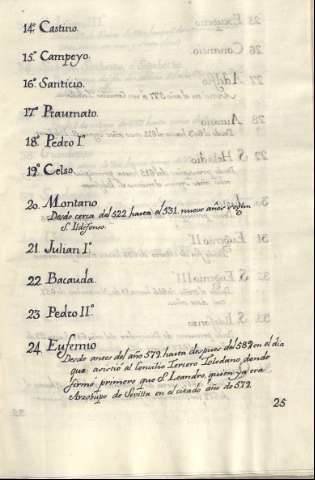 14.° Castino.
15.° Campeyo.
16.° Santicio.
17.° Praumato.
18.° Pedro I.°
19.° Celso.
20. Montano
Desde cerca del 522 hasta el 531. nueve años segun
S. Ildefonso.
21. Julian I.°
22. Bacauda.
23. Pedro II.°
24. Eufemio
Desde antes del año 579. hasta despues del 589 en el dia
que asistió al Concilio Tercero Toledano, donde
firmó primero que S. Leandro, quien ya era
Arzobispo de Sevilla en el citado año de 579.
25